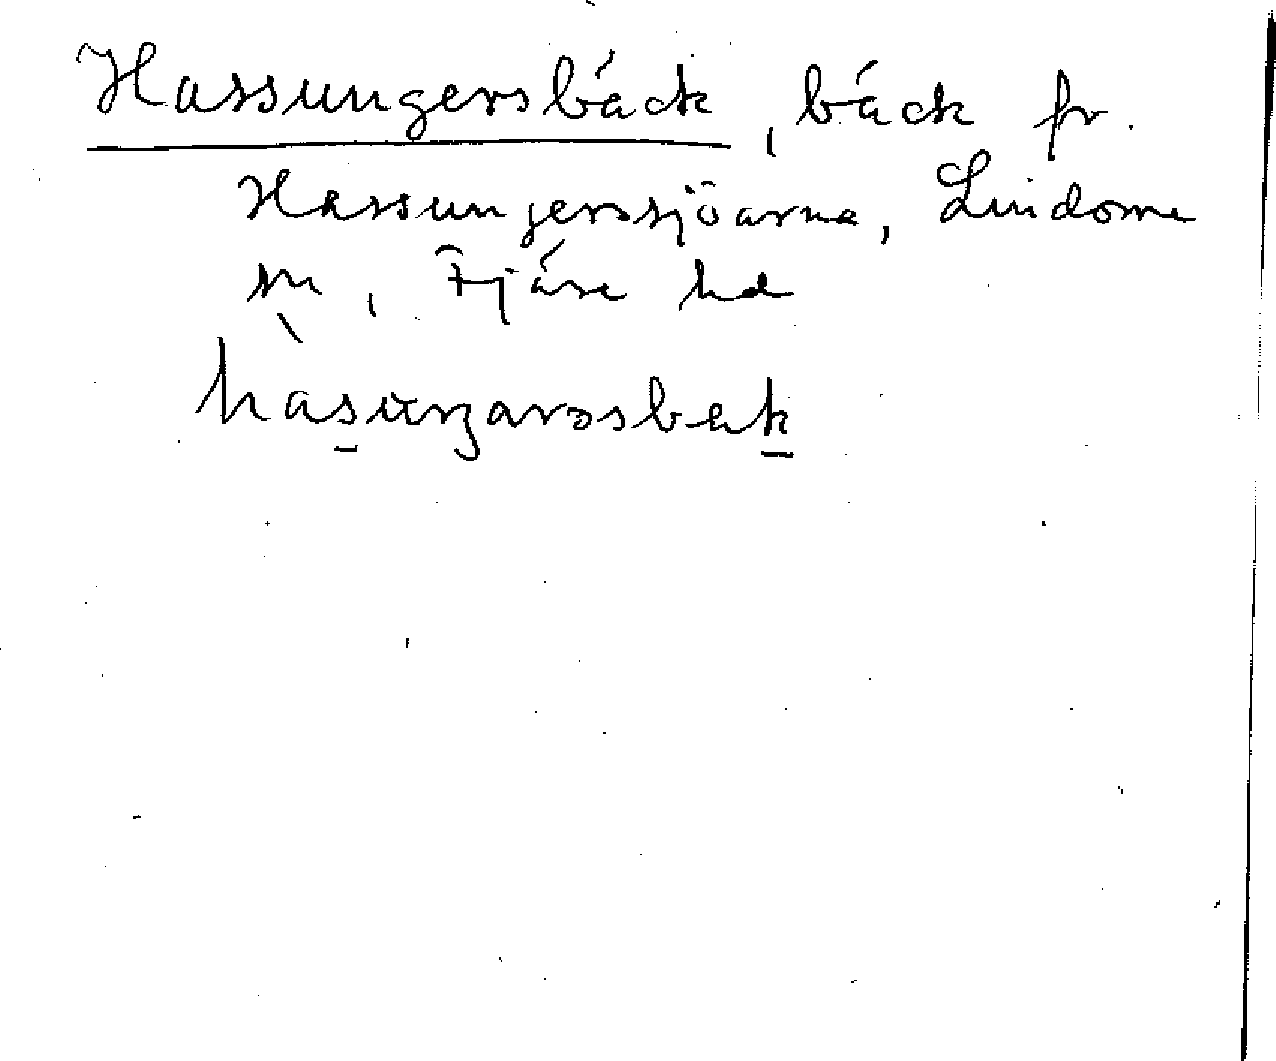 Hassungersbäck, bäck fr.
Hassungerssjöarna, Lindome
sn, Fjäre hd
hàsuŋarsbek